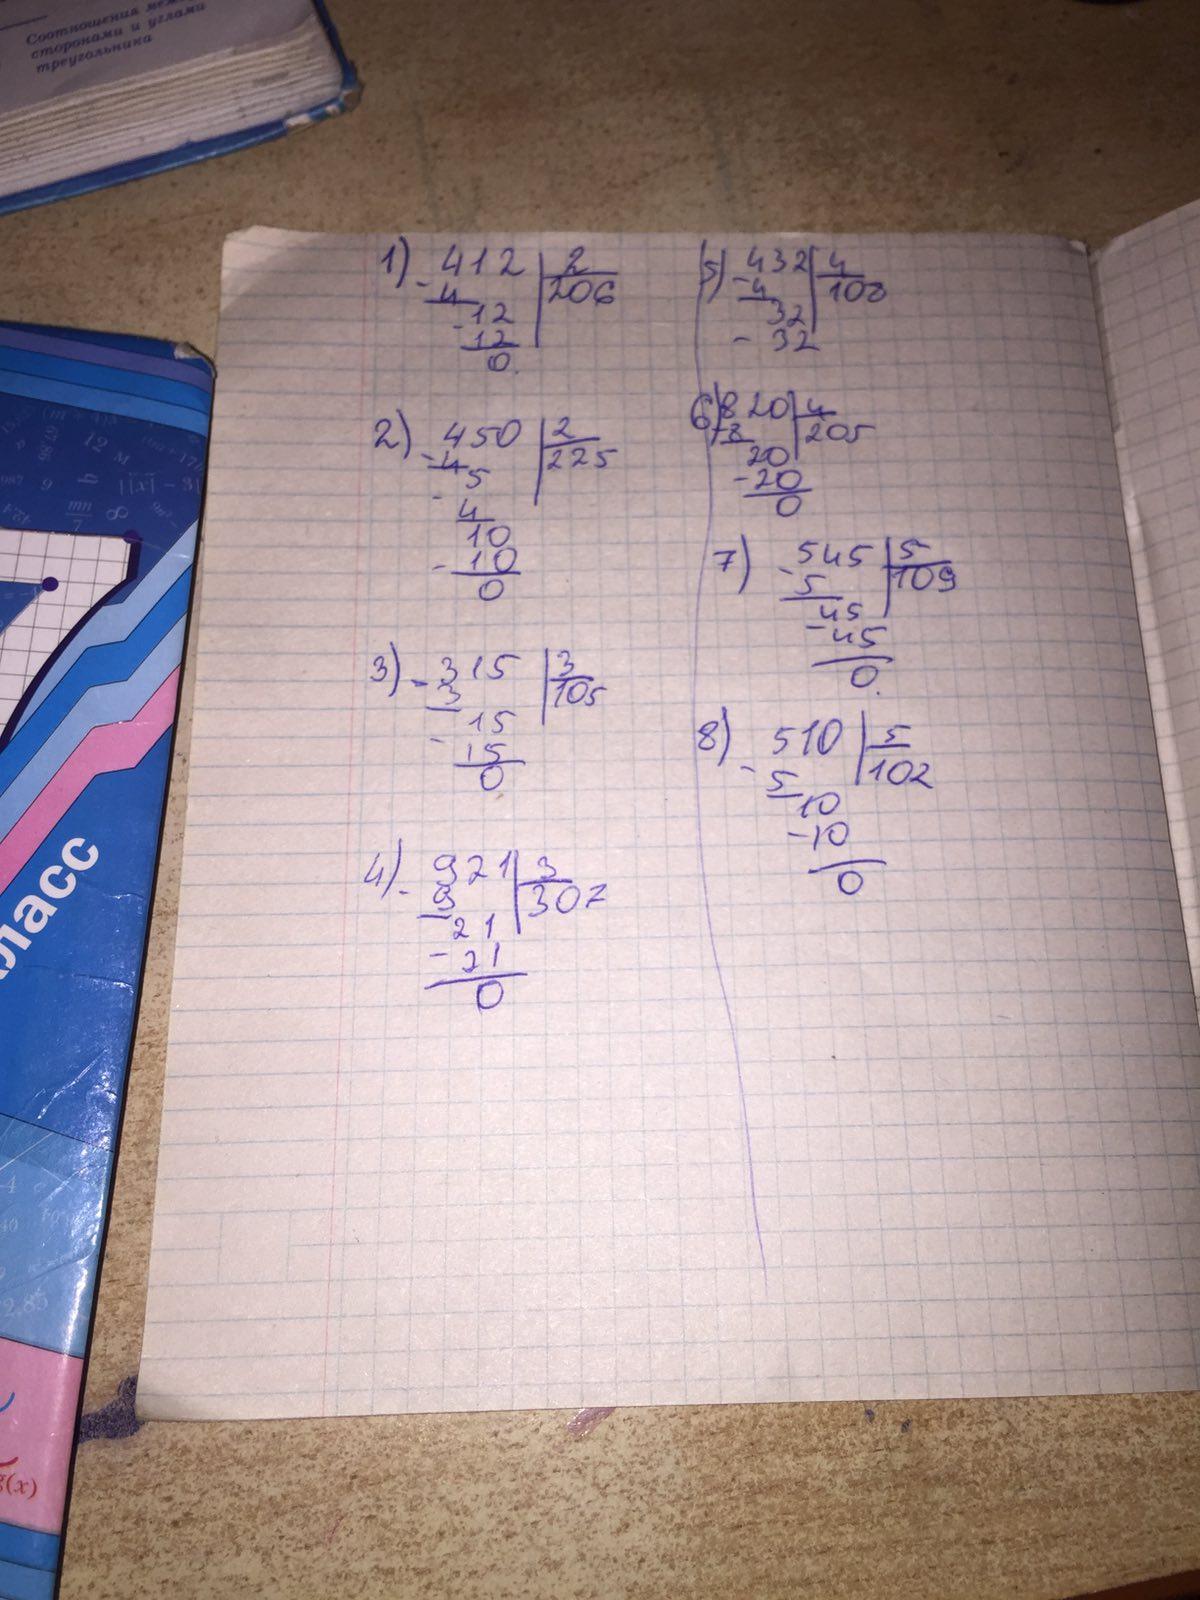 Соотношения меж
сторонами и углами
треугольника
1) 412 | 2
- 4 206
12
- 12
0.
2) 450 | 2
- 4 225
5
- 4
10
- 10
0
3) - 315 | 3
3 105
15
- 15
0
4) - 921 | 3
9 307
21
- 21
0
5) - 432 | 4
4 108
32
- 32
6) 820 | 4
- 8 205
20
- 20
0
7) - 545 | 5
5 109
45
- 45
0.
8) 510 | 5
- 5 102
10
- 10
0
ласс
12
M
987
6
mn
7
∞
-4
40
2,85
g(x)